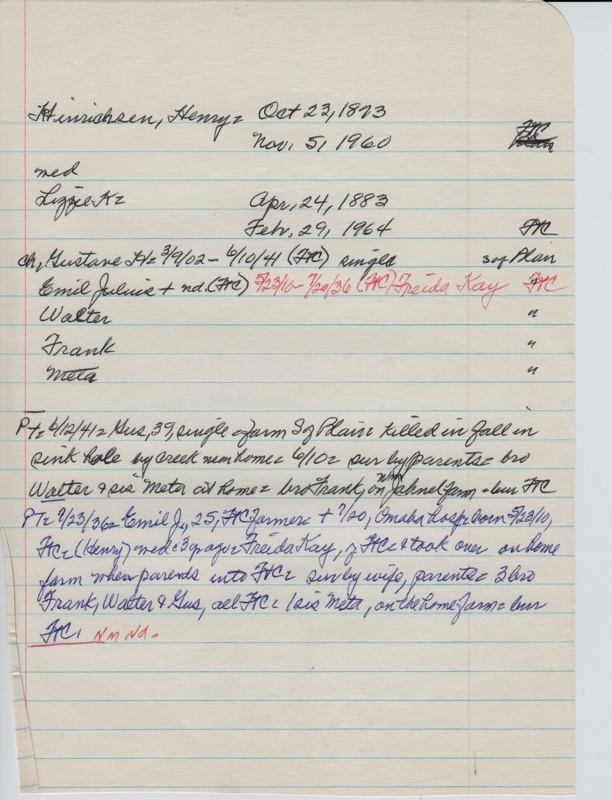 Hinrichsen, Henry = Oct 23, 1873
Nov. 5, 1960 FtC
med
Lizzie K= Apr. 24, 1883
Feb. 29, 1964 FtC
ch, Gustave H= 3/9/02 - 6/10/41 (FtC) single s of Plain
Emil Julius + nd. (FtC) 5/23/10 - 7/20/36 (FtC) Freida Kay FtC
Walter "
Frank "
Meta "
PT= 6/12/41= Gus, 39, single = farm S of Plain= killed in fall in
sink hole by creek near home= 6/10= sur by parents= bro
Walter & sis Meta at home= bro Frank, on farm = bur FtC
PT= 7/23/36= Emil J., 25, FtC farmer= + 7/20, Omaha hosp= born 5/23/10,
FtC= (Henry) med= 3 yr ago= Freida Kay, of FtC & took over on home
farm when parents into FtC= sur by wife, parents= 3 bro
Frank, Walter & Gus, all FtC= 1 sis Meta, on the home farm= bur
FtC. N m Nd.